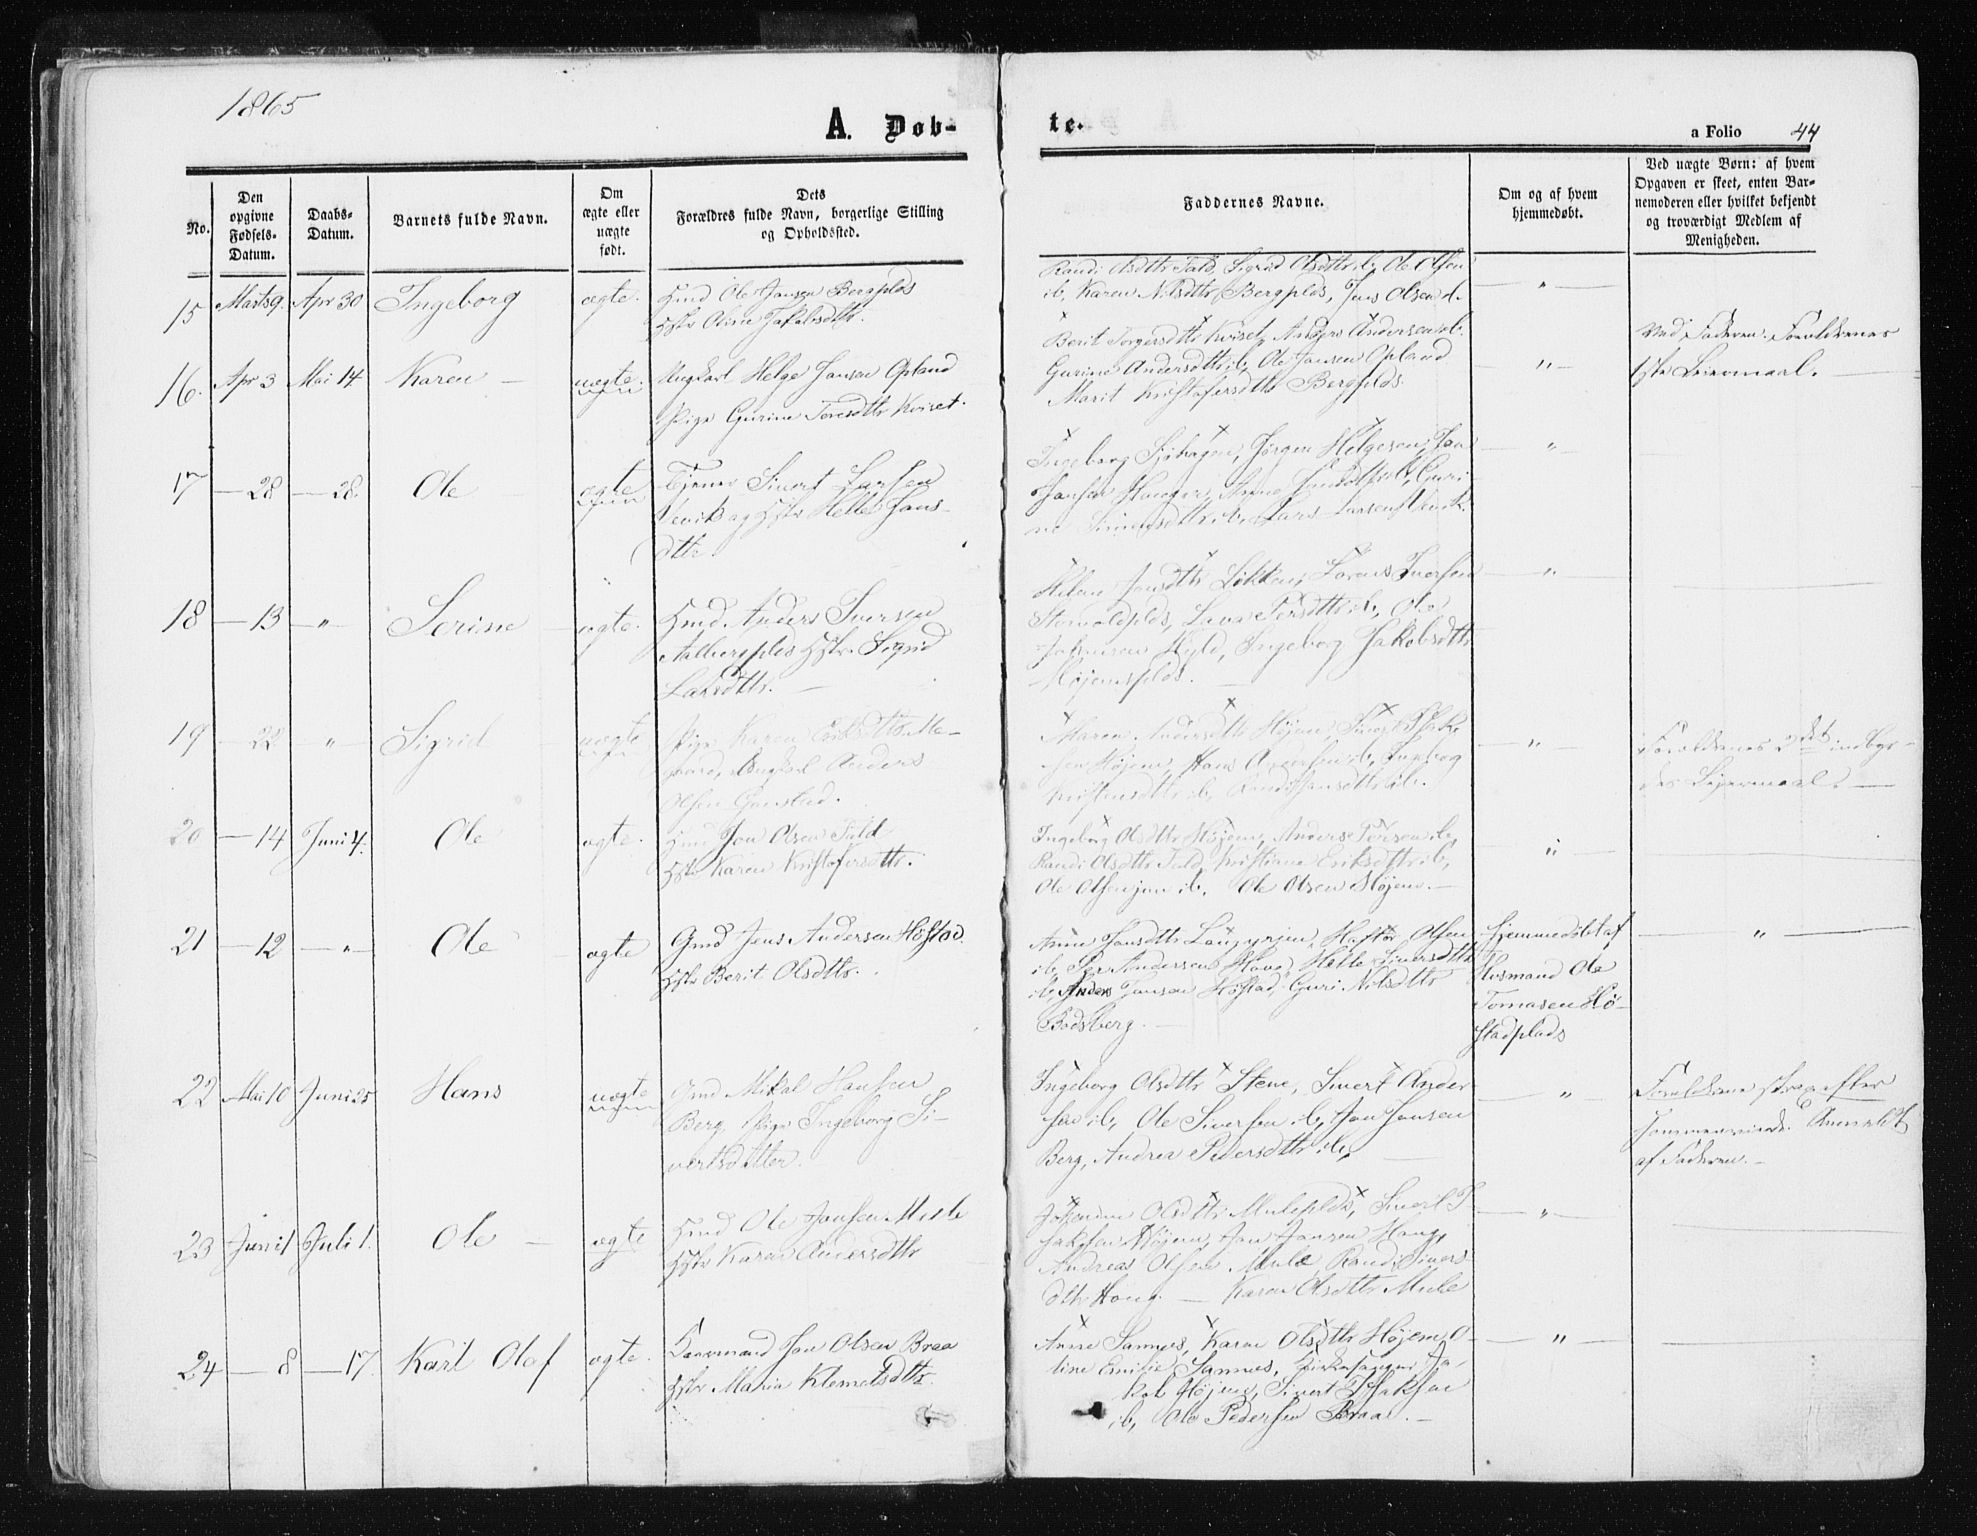 1865
A. Døb-
te.
a Folio 44
No.
Den
opgivne
Fødsels-
Datum.
Daabs-
Datum.
Barnets fulde Navn.
Om
ægte eller
uægte
født.
Dets
Forældres fulde Navn, borgerlige Stilling
og Opholdssted.
Faddernes Navne.
Om og af hvem
hjemmedøbt.
Ved uægte Børn: af hvem
Opgaven er skeet, enten Bar-
nemoderen eller hvilket bekjendt
og troværdigt Medlem af
Menigheden.
15 Marts 9. Apr 30 Ingeborg ægte.
Hmd Ole Jansen Bergplds
Hstr Oline Jakobsdttr.
Randi Olsdttr Tuld, Sigrid Olsdttr ib, Ole Olsen
ib, Karen Nilsdttr Bergplds, Jens Olsen d.
"
16. Apr 3 Mai 14 Karen — uægte
Ungkarl Helge Jansen Opland
Pige Gurine Toresdttr Kviset.
Berit Torgersdttr Kviset, Anders Andersen ib.
Gurine Andersdttr ib, Ole Jansen Opland
Marit Kristofersdttr Bergplds.
"
Ved Faderen. Forældrenes
1ste Leiermaal.
17 — 28 — 28. Ole ægte
Tjener Sivert Larsen
og Hstr Helle Hans-
dttr.
Ingeborg Sjøhagen, Jørgen Helgesen, Jan
Jansen Hauger, Anne ib, Guri-
ne Simensdttr ib, Lars Larsen
"
18 — 13 — " Serine — ægte.
Hmd Anders Iversen
Aalbergplds Hstr. Sigrid
Larsdttr. —
Helene Jensdttr Løkken, Lorens Iversen
Lava Persdttr ib, Ole
Johnsen Hyld, Ingeborg Jakobsdttr
Højemsplds.
"
19 — 22 " Sigrid — uægte
Pige Karen Eriksdttr
Ungkarl Anders
Olsen Gonstad.
Maren Andersdttr Højem, Sivert
sen Højem, Hans Andersen ib, Ingeborg
Kristensdttr ib, Randi Hansdttr ib.
"
Forældrenes 2det indbyr-
des Leiermaal.
20 — 14 Juni 4. Ole ægte.
Hmd Jon Olsen Tuld
Hstr Karen Kristofersdttr.
Ingeborg Olsdttr Højem, Anders Persen ib,
Randi Olsdttr Tuld, Kristiane Eriksdttr ib,
Ole Olsen jun ib, Ole Olsen Højem. —
"
21 — 12 — " Ole ægte
Gmd Jens Andersen Høstad.
Hstr Berit Olsdttr.
Anne Jansdttr Haftor Olsen
ib, Per Andersen Hove, Helle Sivertsdttr
ib, Anders Jansen Høstad, Guri Nilsdttr
Bodsberg. —
Hjemmedøbt af
Husmand Ole
Tomasen Hø-
stadplads
"
22 Mai 10 Juni 25 Hans uægte
Gmd Mikal Hansen
Berg, Pige Ingeborg Si-
vertsdatter.
Ingeborg Olsdttr Stene, Sivert Ander
sen ib, Ole Sivertsen ib, Jan Jansen
Berg, Andrea Pedersdttr ib,
"
Forældrene strax efter
Anmeldt
af Faderen. —
23 Juni 1 Juli 1. Ole — ægte
Hmd Ole Jansen Mule
Hstr Karen Andersdttr
Olsdttr Muleplds, Sivert I
saksen Højem, Jan Jansen Haug,
Andreas Olsen Mule, Randi Sivers-
dttr Haug. — Karen Olsdttr Mule
"
24 — 8 — 17. Karl Olaf ægte.
Gaarmand Jan Olsen Braa
Hstr Maria Klemetsdttr.
Anne Sannes, Karen Olsdttr Højem, O-
line Emilie Sannes, Kirkesanger Ja-
kob Højem, Sivert Isaksen
ib, Ole Pedersen Braa. —
"